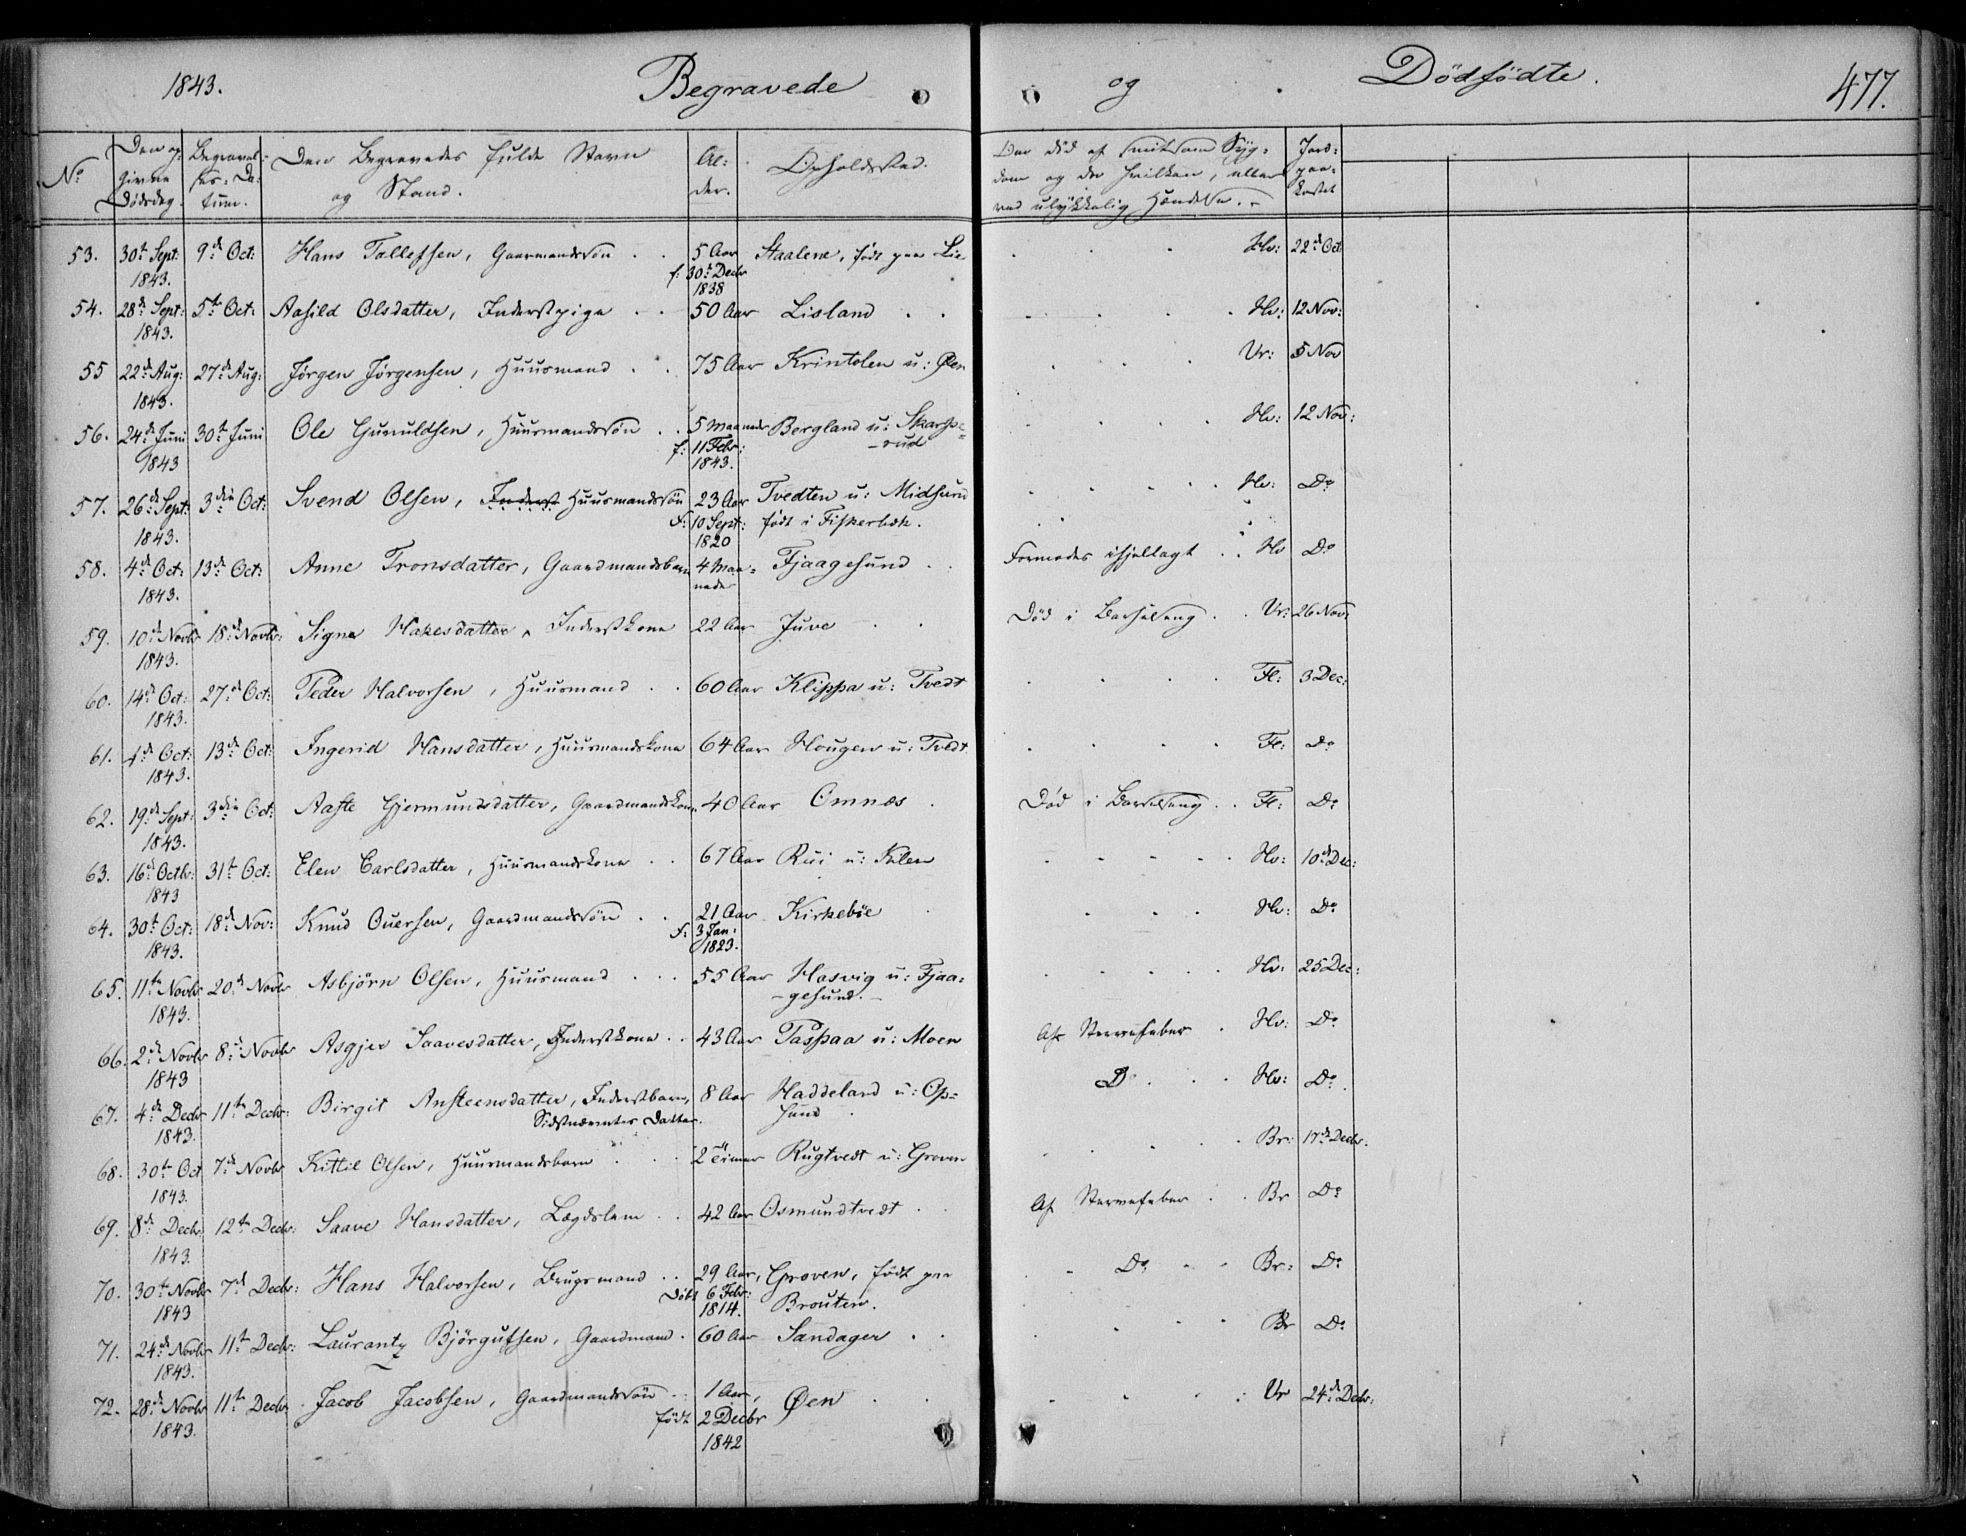 1843. Begravede og Dödfödte. 477.
No | Den op- givne Dödsdag. | Begravel- ses-Da- tum. | Den Begravedes fulde Navn og Stand. | Al- der. | Opholdsted. | Om död af smitsom Syg- dom og da hvilken, eller ved ulykkelig Hændelse. | Jord- paa- kastet
53. 30te Sept: 1843. 9de Oct: Hans Tallefsen, Gaarmandssön . . 5 Aar f: 30te Decbr 1838 Staalene, födt paa Lie Hv: 22de Oct
54. 28de Sept: 1843. 5te Oct: Aasild Olsdatter, Inderstpige . . 50 Aar Lisland . . Hv: 12 Nov:
55 22de Aug: 1843. 27de Aug: Jörgen Jörgensen, Huusmand . . 75 Aar Krintolen u: Øen Vr: 5 Nov
56. 24de Juni 1843 30te Juni Ole Gunuldsen, Huusmandssön . . 5 Maaneder f: 11 Febr: 1843. Bergland u: Skarpe- rud Hv: 12 Nov:
57. 26de Sept: 1843. 3die Oct: Svend Olsen, Inderst Huusmandssön 23 Aar f: 10 Sept: 1820 Tvedten u: Midsund födt i Fiskerbæk. Hv: Do
58. 4de Oct: 1843. 13de Oct: Anne Tronsdatter, Gaardmandsbarn 4 Maa- neder Fjaagesund . . Formodes ihjellagt . . Hv Do
59. 10de Novbr 1843. 18de Novbr: Signe Hakesdatter, Inderstkone 22 Aar Juve . . Död i Barselseng . . Vr: 26 Nov:
60. 14de Oct: 1843. 27de Oct: Peder Halvorsen, Huusmand . . 60 Aar Klippa u: Tvedt Fl: 3 Dec:
61. 4de Oct: 1843. 13de Oct: Ingerid Hansdatter, Huusmandskone 64 Aar Hougen u: Tvedt Fl: Do
62. 19de Sept: 1843. 3die Oct: Aaste Gjermundsdatter, Gaardmandskone 40 Aar Omnæs . Död i Barselseng . . Fl: Do
63. 16de Octbr: 1843 31te Oct: Elen Carlsdatter, Huusmandskone . . 67 Aar Rui u: Kilen Hv: 10de Dec:
64. 30te Oct: 1843. 18de Nov: Knud Ouersen, Gaardmandssön . . 21 Aar f: 3 Jan: 1823. Kirkeböe . Hv: Do
65. 11te Novbr 1843. 20de Novbr Asbjörn Olsen, Huusmand . . . 55 Aar Hasvig u: Fjaa- gesund. Hv: 25 Dec:
66. 2de Novbr 1843 8de Novbr Asgjer Saavesdatter, Inderstkone . . 43 Aar Paspaa u: Moen Af Nervefeber . Hv: Do
67. 4de Decbr 1843. 11te Decbr: Birgit Ansteensdatter, Inderstbarn, Sidstnævntes Datter. 8 Aar Haddeland u: Op- sund Do . . . Hv: Do.
68. 30te Oct 1843. 7de Novbr Kittil Olsen, Huusmandsbarn . . . 2 Timer Rugtvedt u: Groven Br: 17de Decbr.
69. 8de Decbr 1843. 12te Decbr: Saave Hansdatter, Lægdslem . . 42 Aar Osmundtvedt . . Af Nervefeber . . Br Do
70. 30te Novbr 1843 7de Decbr: Hans Halvorsen, Brugsmand . . 29 Aar, Döbt 6 Febr: 1814. Groven, födt paa Brouten. Do . . Br: Do
71. 24de Novbr 1843. 11te Decbr: Laurantz Björgufsen, Gaardmand . 60 Aar Sandager . . Br Do
72. 28de Novbr 1843. 11te Decbr Jacob Jacobsen, Gaardmandssön . . 1 Aar, födt 2 Decbr 1842 Øen . . Vr 24de Decbr: